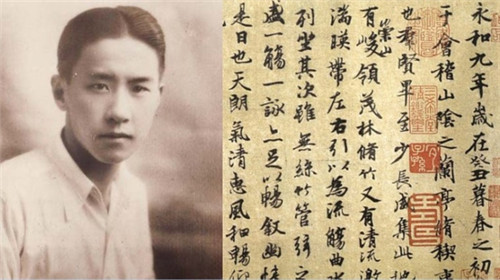 永和九年歲在癸丑暮春之初
于會稽山陰之蘭亭脩稧事
也羣賢畢至少長咸集此地
有崇山峻領茂林脩竹又有清流激
湍暎帶左右引以為流觴曲
列坐其次雖無絲竹管弦之
盛一觴一詠亦足以暢叙幽情
是日也天朗氣清惠風和暢仰